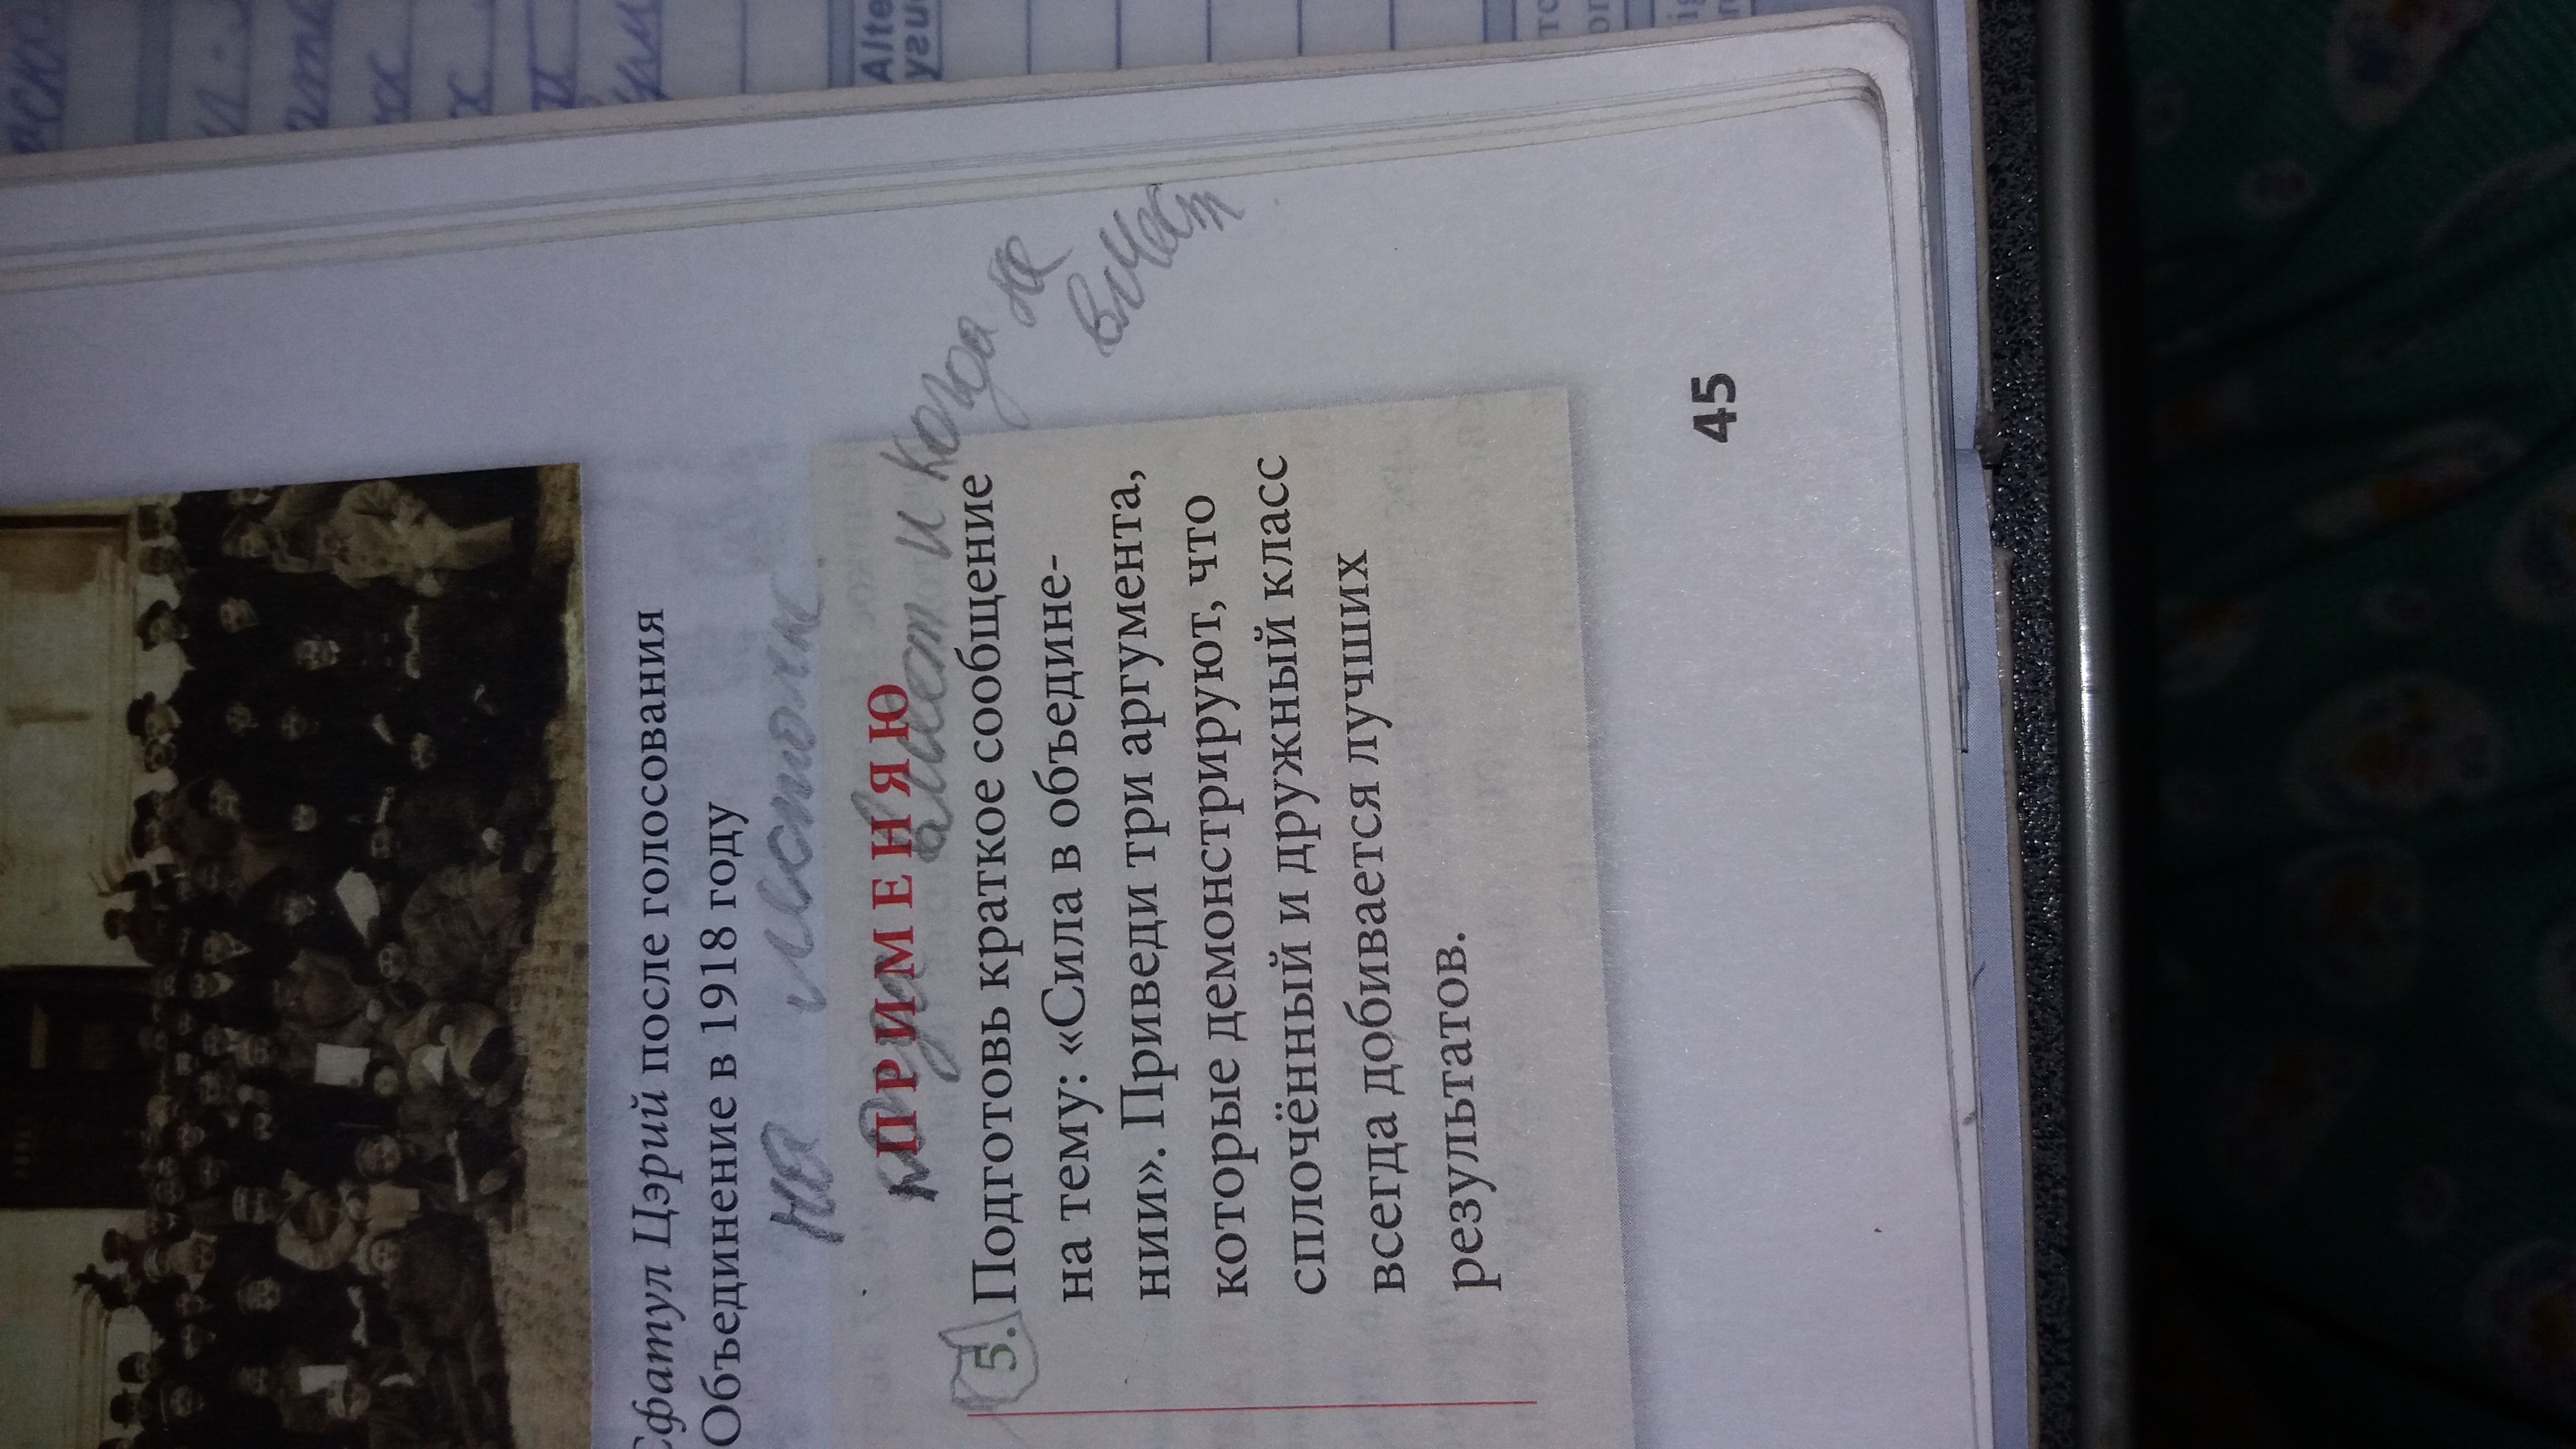 Сфатул Цэрий после голосования
Объединение в 1918 году
на листочке
ПРИМЕНЯЮ
когда вместе и когда не
вмест
5. Подготовь краткое сообщение
на тему: «Сила в объедине-
нии». Приведи три аргумента,
которые демонстрируют, что
сплочённый и дружный класс
всегда добивается лучших
результатов.
45
Alte